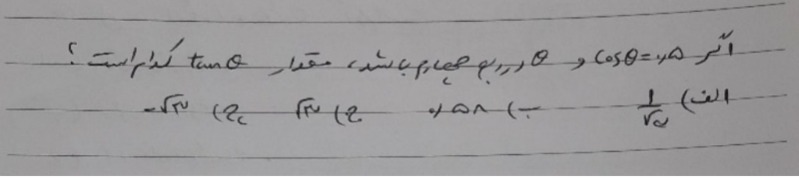 اگر cosθ=۰٫۵ و θ در ربع چهارم باشد، مقدار tanθ کدام است؟
الف) ۱/√۵ ب) ۰٫۵۸ ج) √۳ د) -√۳